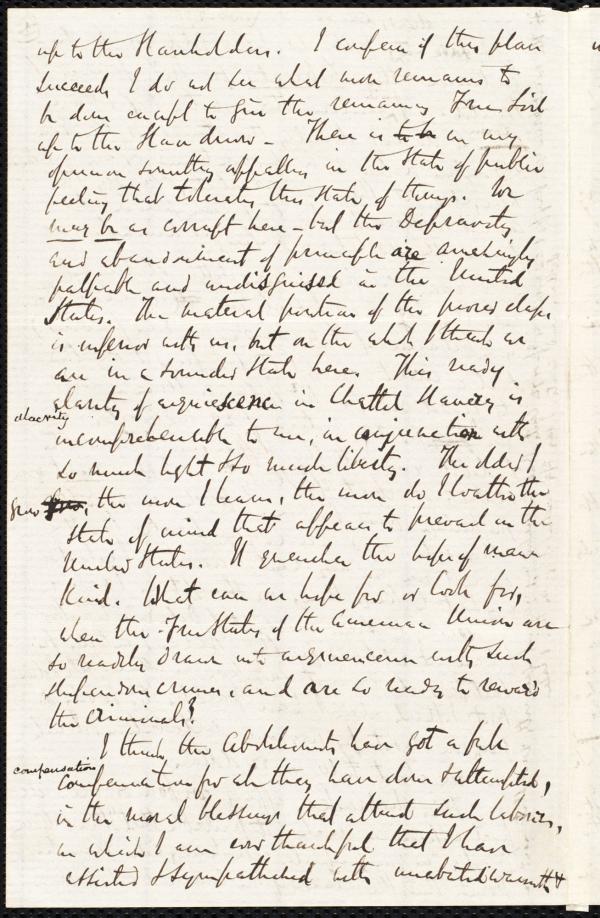 up to the Slaveholders. I confess if this plan
succeeds I do not see what more remains to
be done except to give the remaining Free Soil
up to the Slave drivers - There is to be in my
opinion something appalling in the State of public
feeling that tolerates this state of things. We
may be as corrupt here - but the Depravity
and abandonment of principle are amazingly
palpable and undisguised in the United
States. The material position of the poorer class
is inferior with us, but on the whole I think we
are in a sounder state here. This ready
alacrity of acquiescence in Chattel Slavery is
alacrity
incomprehensible to me, in conjunction with
so much light & so much liberty. The older I
grow, the more I learn, the more do I loathe the
state of mind that appears to prevail in the
United States. It quenches the hope of man
kind. What can we hope for or look for,
when the Free States of the American Union are
so readily drawn into acquiescence with such
stupendous crimes, and are so ready to reward
the criminals?
I think the Abolitionists have got a full
compensation
compensation for all they have done & attempted,
in the moral blessings that attend such labours,
in which I am ever thankful that I have
assisted & sympathised with unabated warmth &